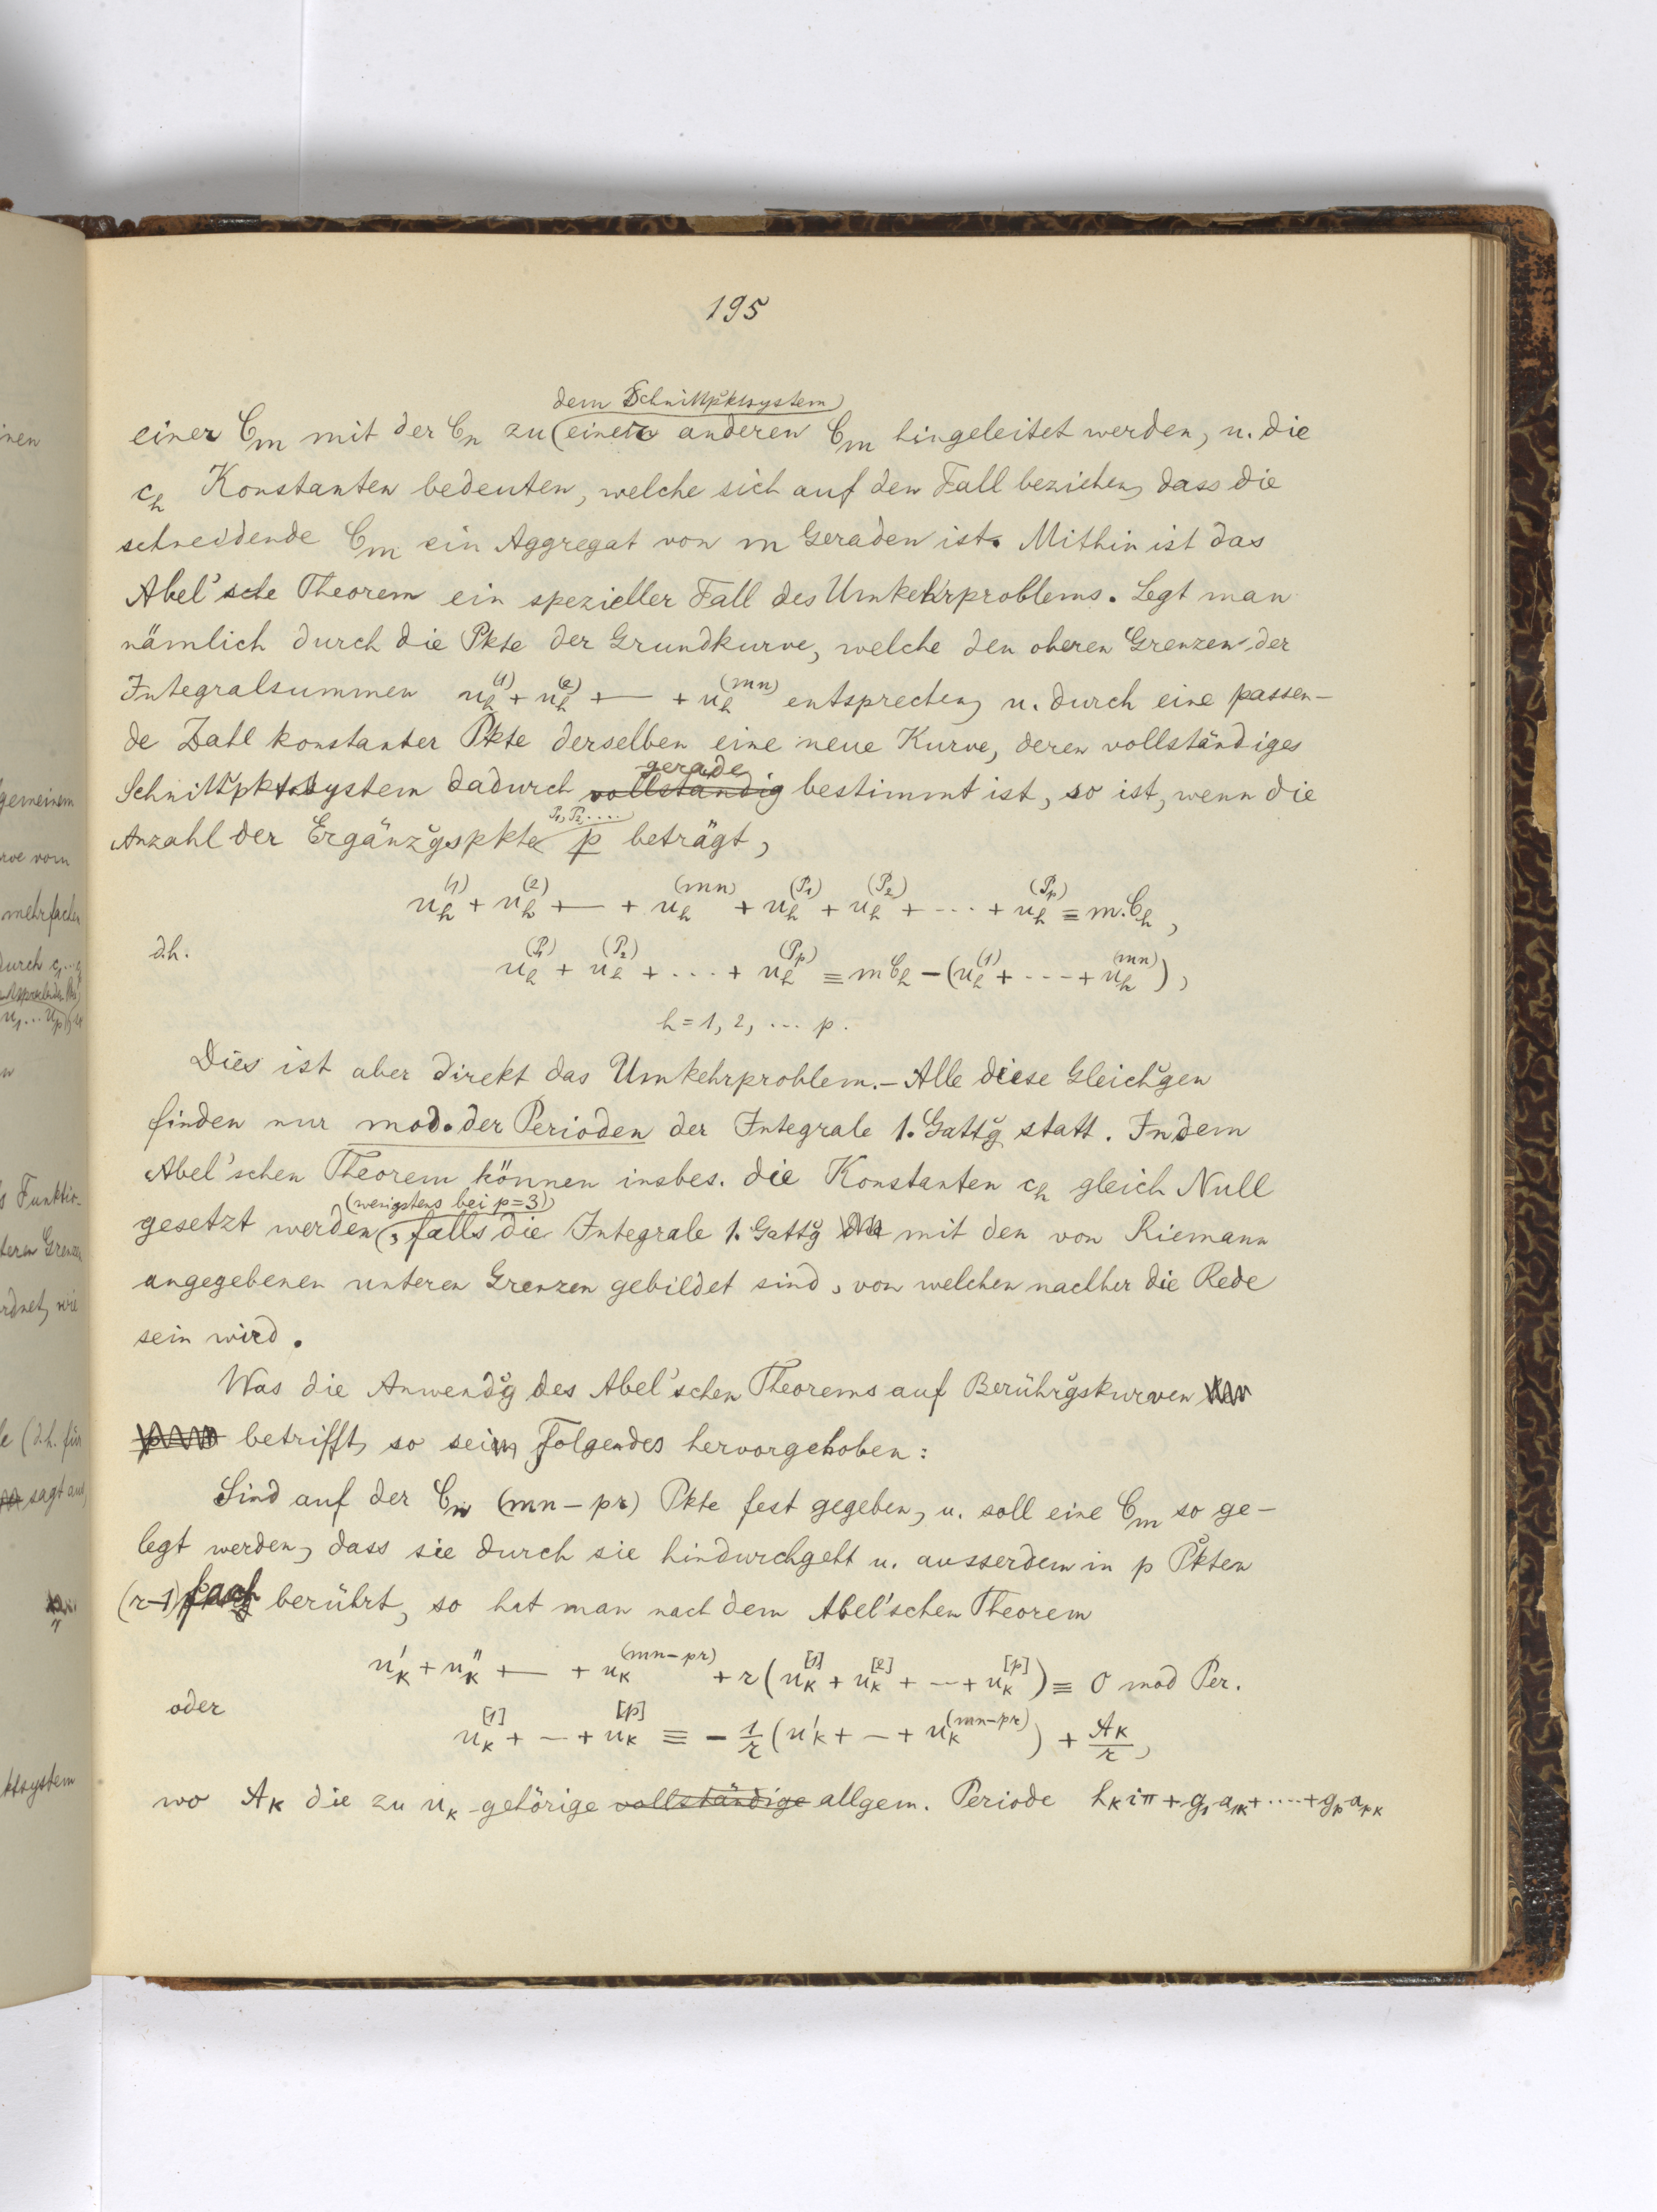 195
dem Schnittpktsystem
einer C_m mit der C_n zu (einer anderen C_m hingeleitet werden, u. die
c_h Konstanten bedeuten, welche sich auf den Fall beziehen, dass die
schneidende C_m ein Aggregat von m Geraden ist. Mithin ist das
Abel'sche Theorem ein spezieller Fall des Umkehrproblems. Legt man
nämlich durch die Pkte der Grundkurve, welche den oberen Grenzen der
Integralsummen u_h^(1) + u_h^(2) + — + u_h^(mn) entsprechen, u. durch eine passen-
de Zahl konstanter Pkte derselben eine neue Kurve, deren vollständiges
gerade
Schnittpktsystem dadurch vollständig bestimmt ist, so ist, wenn die
P_1, P_2, ....
Anzahl der Ergänzgspkte p beträgt,
u_h^(1) + u_h^(2) + — + u_h^(mn) + u_h^(P_1) + u_h^(P_2) + ... + u_h^(P_p) ≡ m.C_h,
d.h.
u_h^(P_1) + u_h^(P_2) + ... + u_h^(P_p) ≡ m C_h — (u_h^(1) + --- + u_h^(mn)),
h = 1, 2, ... p.
Dies ist aber direkt das Umkehrproblem. – Alle diese Gleichgen
finden nur mod. der Perioden der Integrale 1. Gattg statt. In dem
Abel'schen Theorem können insbes. die Konstanten c_h gleich Null
(wenigstens bei p=3)
gesetzt werden, falls die Integrale 1. Gattg mit den von Riemann
angegebenen unteren Grenzen gebildet sind, von welchen nachher die Rede
sein wird.
Was die Anwendg des Abel'schen Theorems auf Berührgskurven
betrifft, so sei Folgendes hervorgehoben:
Sind auf der C_n (mn – pr) Pkte fest gegeben, u. soll eine C_m so ge-
legt werden, dass sie durch sie hindurchgeht u. ausserdem in p Pkten
(r-1) fach berührt, so hat man nach dem Abel'schen Theorem
u_k' + u_k'' + — + u_k^(mn-pr) + r (u_k^[1] + u_k^[2] + --- + u_k^[p]) ≡ 0 mod Per.
oder
u_k^[1] + — + u_k^[p] ≡ - 1/r (u_k' + — + u_k^(mn-pr)) + A_k/r,
wo A_k die zu u_k gehörige vollständige allgem. Periode h_k iπ + g_1 a_1k + .... + g_p a_pk